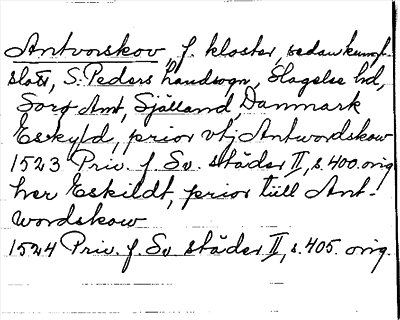 Antvorskov, f. kloster, sedan kungl.
slott, S. Peders landsogn, Slagelse hd,
Sorø Amt, Själland, Danmark
Eskyld, prior vtj Antwordskow
1523 Priv. f. Sv. städer II, s. 400. orig.
her Eskildt, prior tiill Ant-
wordskow
1524 Priv. f. Sv städer II, s. 405. orig.